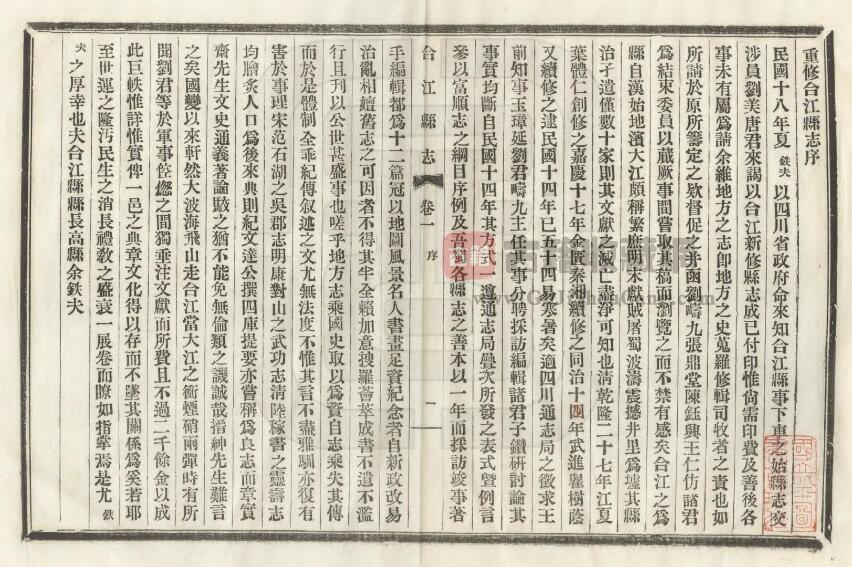 重修合江縣志序
民國十八年夏鉄夫以四川省政府命來知合江縣事下車之始縣志交
涉員劉美唐君來謁以合江新修縣志成已付印惟尙需印費及善後各
事未有屬爲請余維地方之志卽地方之史蒐羅修輯司牧者之責也如
所請於原所籌定之欵督促之幷函劉疇九張鼎堂陳鈺興王仁仿諸君
爲結束委員以蕆厥事間嘗取其稿而瀏覽之而不禁有感矣合江之爲
縣自漢始地濱大江頗稱繁庶明末獻賊屠蜀波濤震撼井里爲墟其縣
治孑遺僅數十家則其文獻之滅亡盡淨可知也淸乾隆二十七年江夏
葉體仁創修之嘉慶十七年金匱秦湘續修之同治十四年武進瞿樹蔭
又續修之逮民國十四年已五十四易寒暑矣適四川通志局之徵求王
前知事玉璋延劉君疇九主任其事分聘採訪編輯諸君子鑽硏討論其
事實均斷自民國十四年其方式一遵通志局疊次所發之表式曁例言
參以富順志之綱目序例及吾蜀各縣志之善本以一年而採訪竣事著
合江縣志
卷一 序
二
手編輯都爲十二篇冠以地圖風景名人書畫足資紀念者自新政改易
治亂相嬗舊志之可因者不得其半全賴加意搜羅薈萃成書不遺不濫
行且刊以公世甚盛事也嗟乎地方志乘國史取以爲資自志乘失其傳
而於是體制全乖紀傳叙述之文尤無法度不惟其言不盡雅馴亦復有
害於事理宋范石湖之吳郡志明康對山之武功志淸陸稼書之靈壽志
均膾炙人口爲後來典則紀文達公撰四庫提要亦嘗稱爲良志而章實
齋先生文史通義著論駁之猶不能免無倫類之譏誠哉搢紳先生難言
之矣國變以來軒然大波海飛山走合江當大江之衝煙硝雨彈時有所
聞劉君等於軍事倥傯之間獨垂注文獻而所費且不過二千餘金以成
此巨帙惟詳惟實俾一邑之典章文化得以存而不墜其關係爲奚若耶
至世運之隆汚民生之消長禮敎之盛衰一展卷而瞭如指掌焉是尤鉄
夫之厚幸也夫合江縣縣長高縣余鉄夫